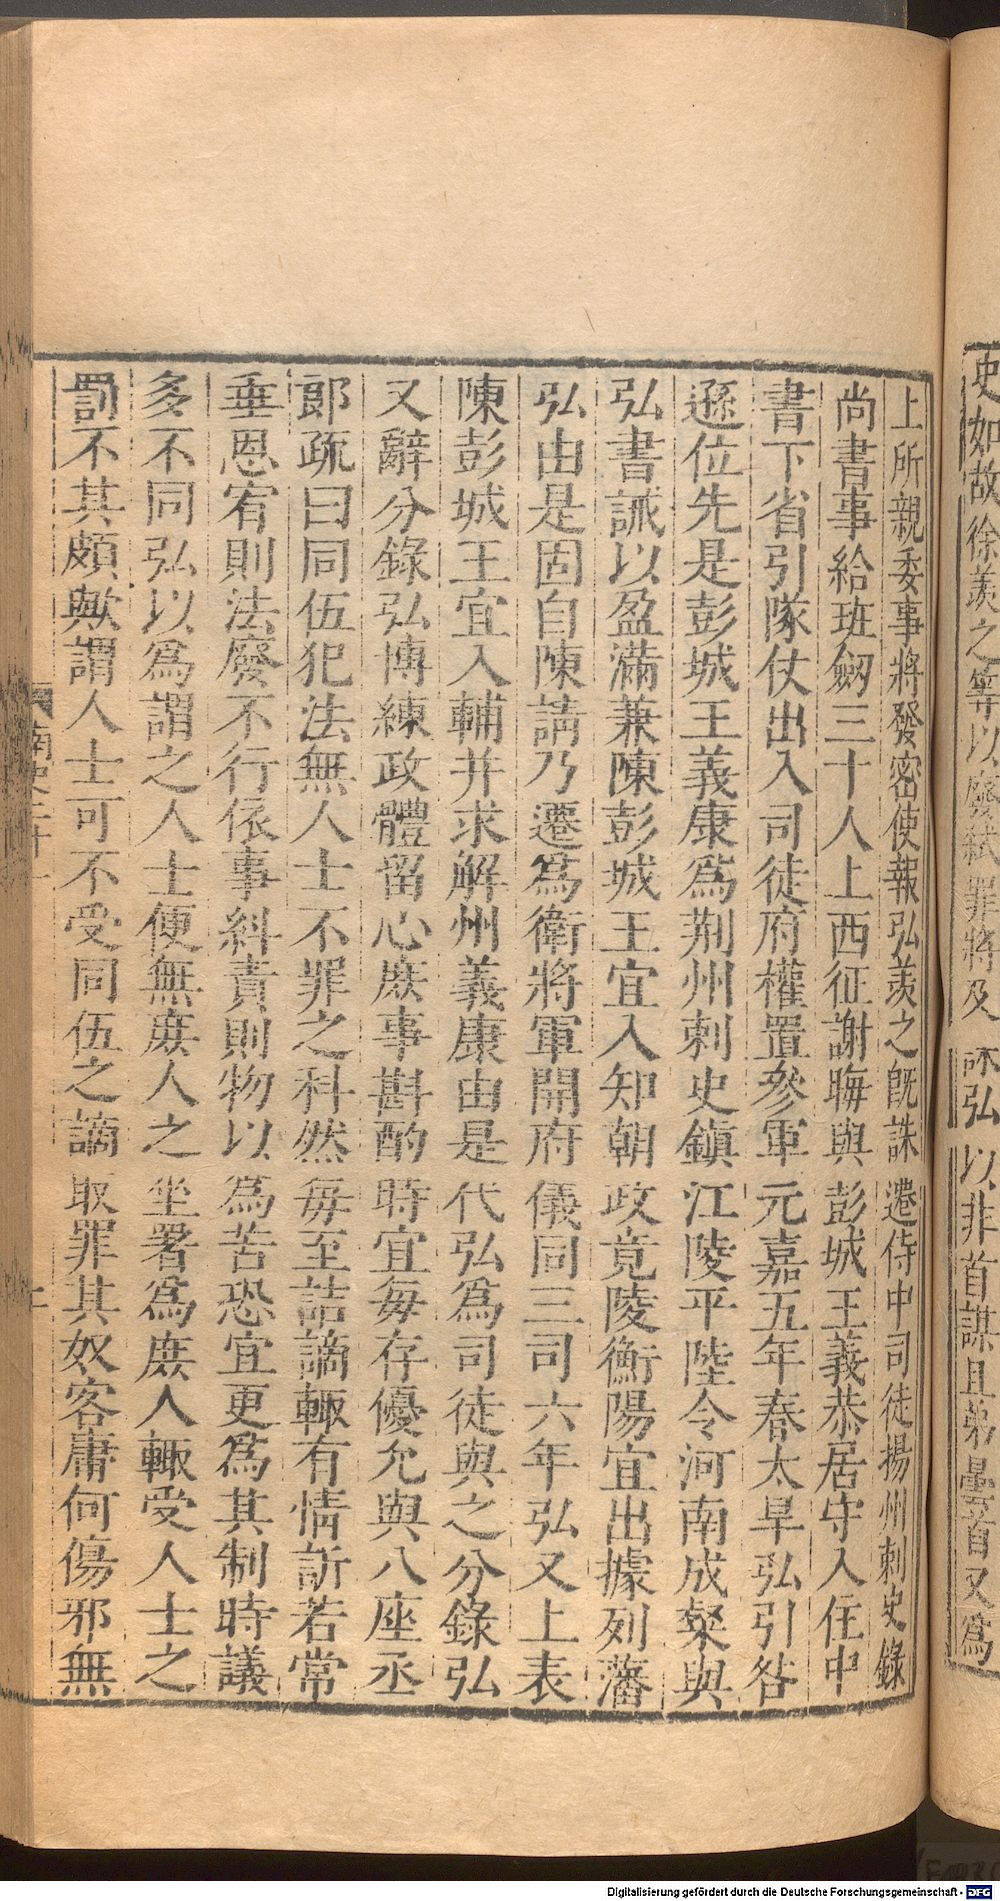 史如故徐羨之等以廢弑罪將及誅弘以非首謀且弟曇首又爲
上所親委事將發密使報弘羨之既誅遷侍中司徒揚州刺史錄
尚書事給班劒三十人上西征謝晦與彭城王義恭居守入住中
書下省引隊仗出入司徒府權置參軍元嘉五年春太旱弘引咎
遜位先是彭城王義康爲荆州刺史鎮江陵平陸令河南成粲與
弘書誡以盈滿兼陳彭城王宜入知朝政竟陵衡陽宜出據列藩
弘由是固自陳請乃遷爲衛將軍開府儀同三司六年弘又上表
陳彭城王宜入輔并求解州義康由是代弘爲司徒與之分錄弘
又辭分錄弘博練政體留心庶事斟酌時宜每存優允與八座丞
郎疏曰同伍犯法無人士不罪之科然每至詰謫輒有情訴若常
垂恩宥則法廢不行依事糾責則物以爲苦恐宜更爲其制時議
多不同弘以爲謂之人士便無庶人之坐署爲庶人輒受人士之
罰不其頗歟謂人士可不受同伍之謫取罪其奴客庸何傷邪無
南史二十一
Digitalisierung gefördert durch die Deutsche Forschungsgemeinschaft - DFG